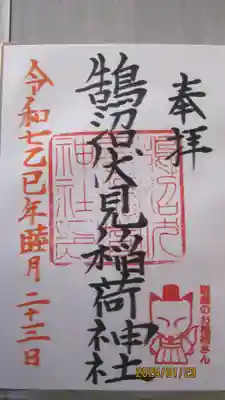 奉拝
鵠沼伏見稲荷神社
令和七乙巳年睦月二十三日
鵠沼のお稲荷さん
2025/01/23